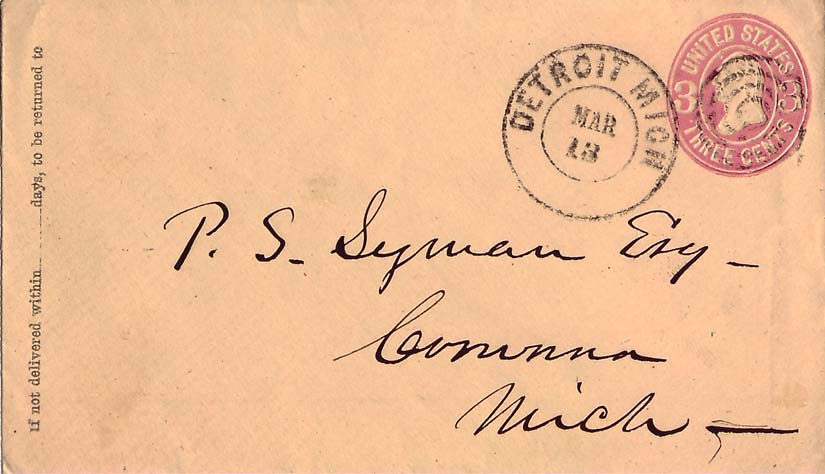 If not delivered within______days, to be returned to
DETROIT MICH
MAR
13
UNITED STATES
3 3
THREE CENTS
P. S. Lyman Esq –
Corunna
Mich –